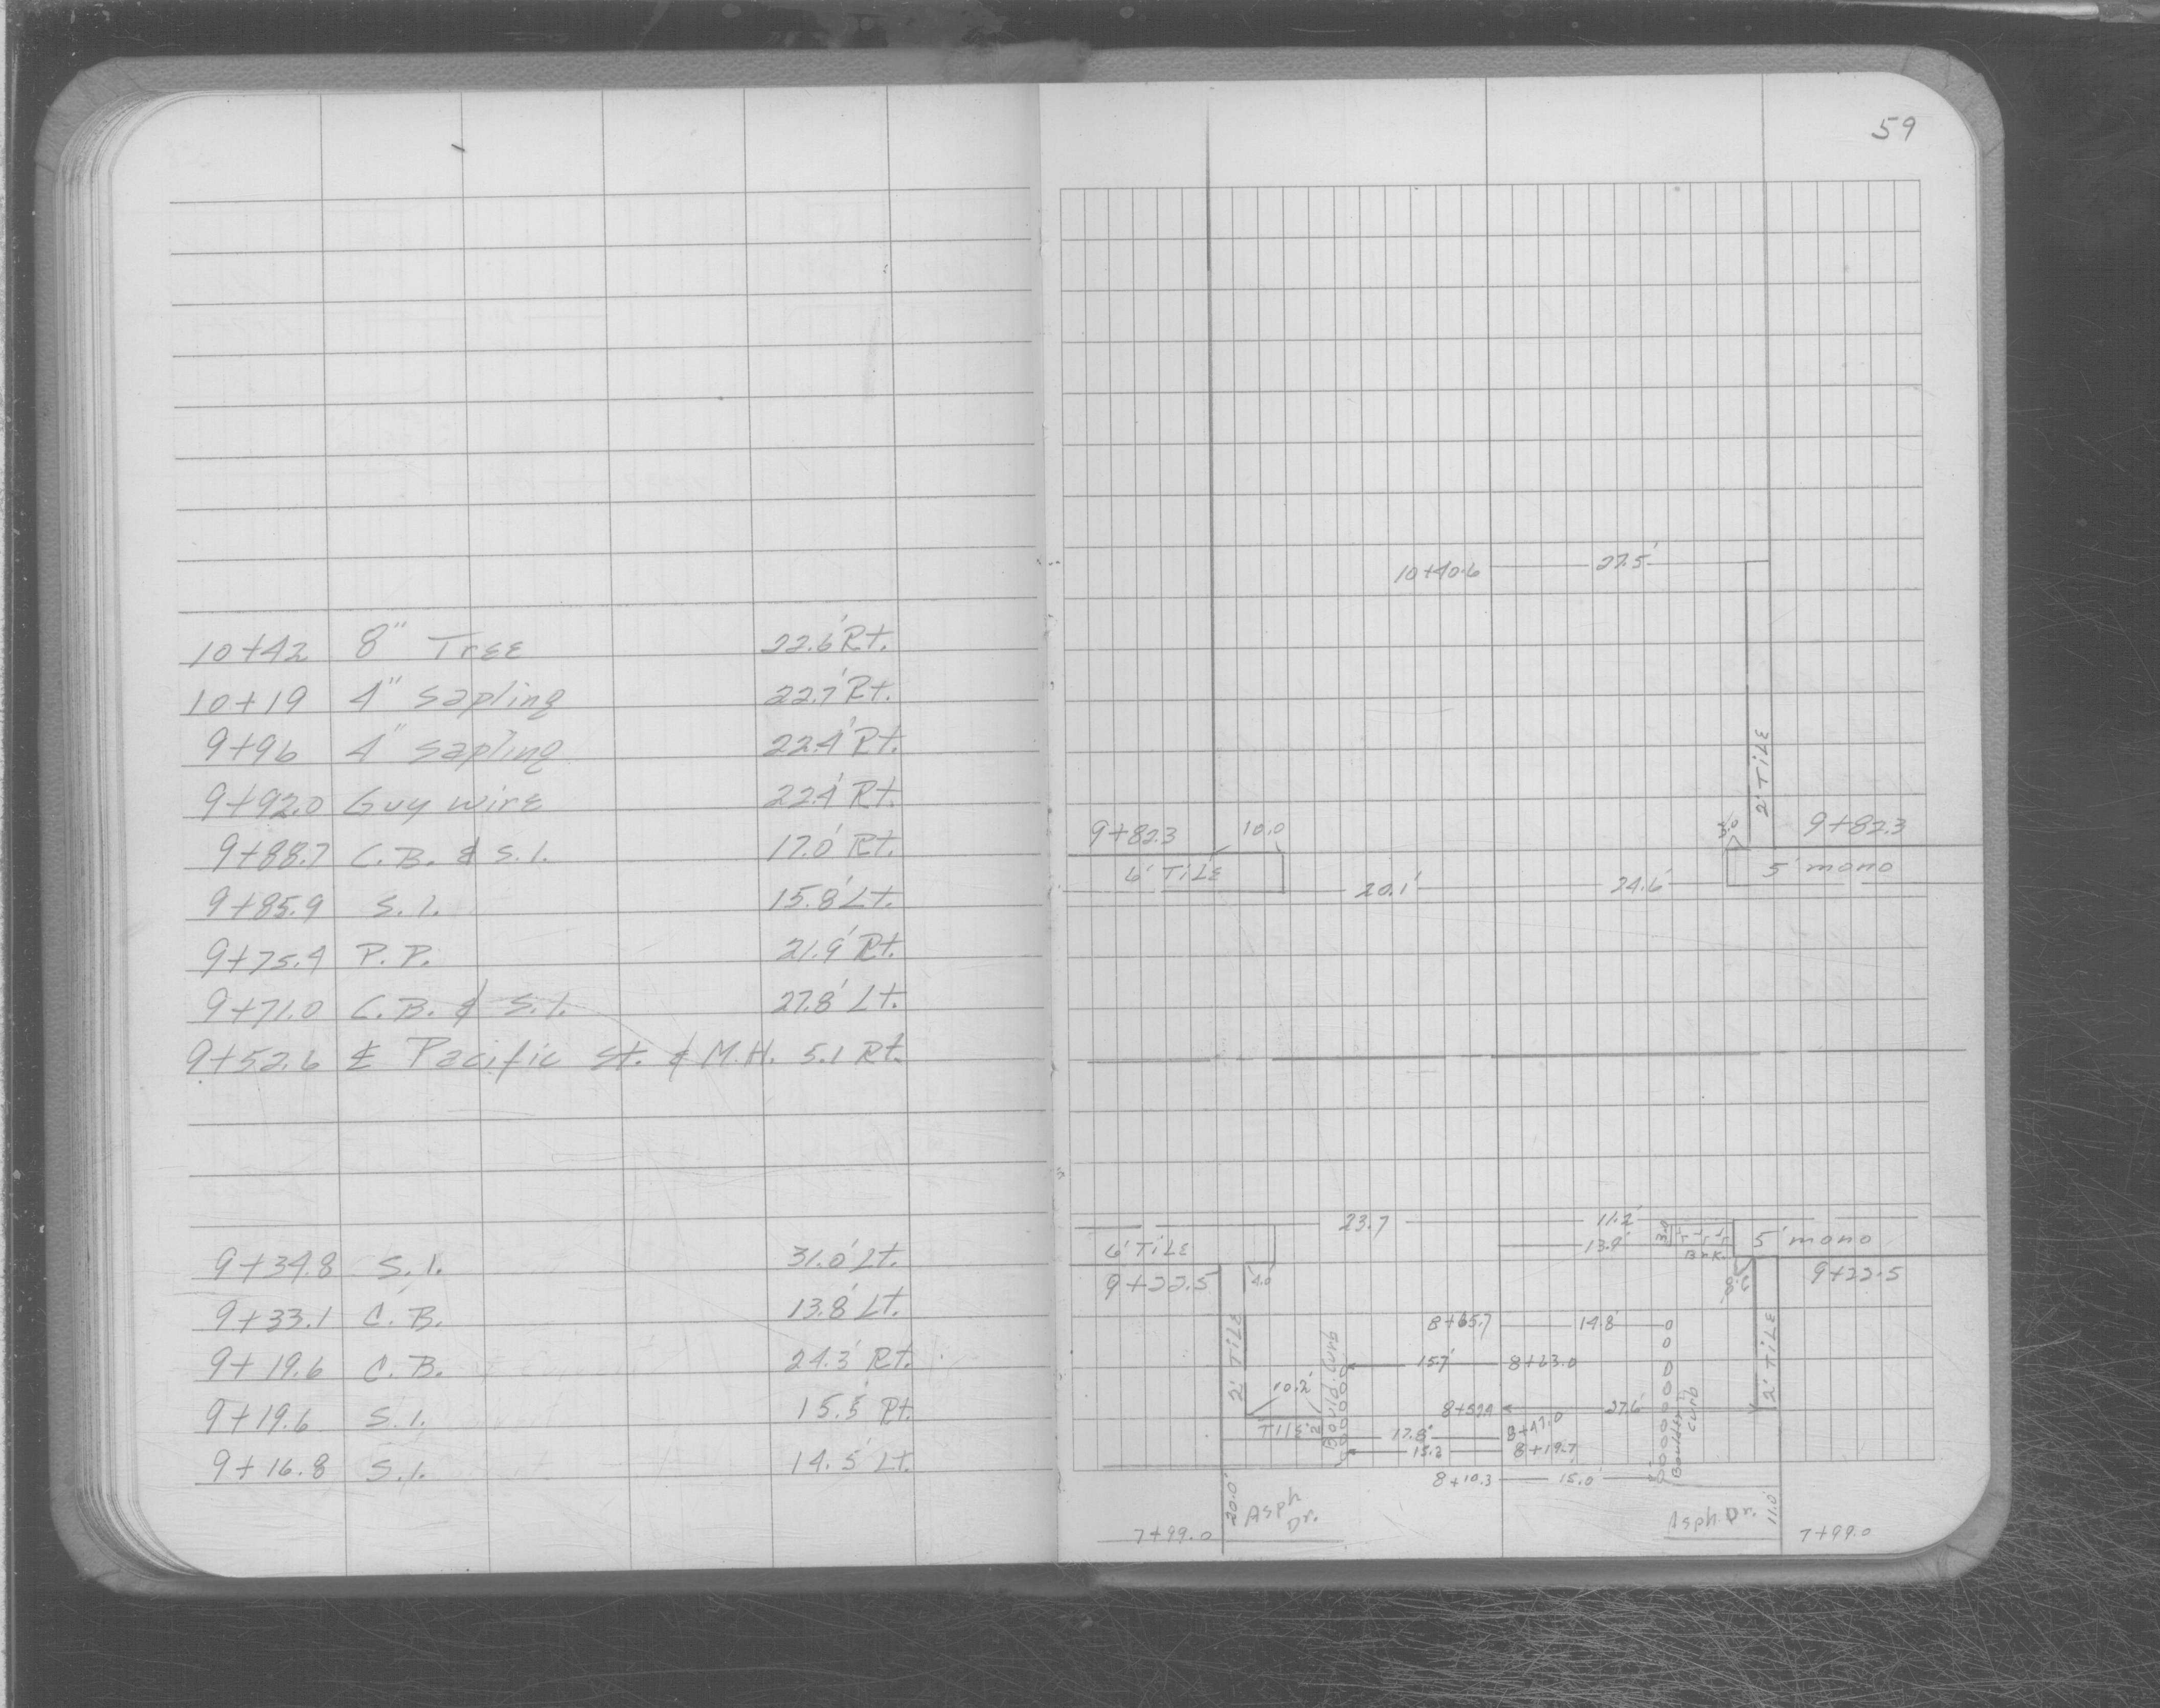 59
10+42 8" Tree 22.6' Rt.
10+19 4" Sapling 22.7' Rt.
9+96 4" Sapling 22.4' Rt.
9+92.0 Guy wire 22.4' Rt.
9+88.7 C.B. & S.I. 17.0' Rt.
9+85.9 S.I. 15.8' Lt.
9+75.4 P.P. 21.9' Rt.
9+71.0 C.B. & S.I. 27.8' Lt.
9+52.6 ℄ Pacific St. & M.H. 5.1 Rt.
9+34.8 S.I. 31.0' Lt.
9+33.1 C.B. 13.8' Lt.
9+19.6 C.B. 24.3' Rt.
9+19.6 S.I. 15.5' Rt.
9+16.8 S.I. 14.5' Lt.
10+40.6 27.5'
2' TILE
9+82.3 10.0 3.0 9+82.3
6' TILE 5' mono
20.1' 24.6'
23.7 11.2'
6' TILE 13.9' 3.0 Brk. 5' mono
9+22.5 4.0 9+22.5
8+65.7 14.8'
2' TILE Bould. Curb 15.7' 8+63.0 2' TILE
10.2' 27.6'
TILE 2' 17.8' 8+47.0 Boulder Curb
15.2 8+19.7
8+10.3 15.0'
20.0' Asph Dr. Asph Dr. 11.0'
7+99.0 7+99.0